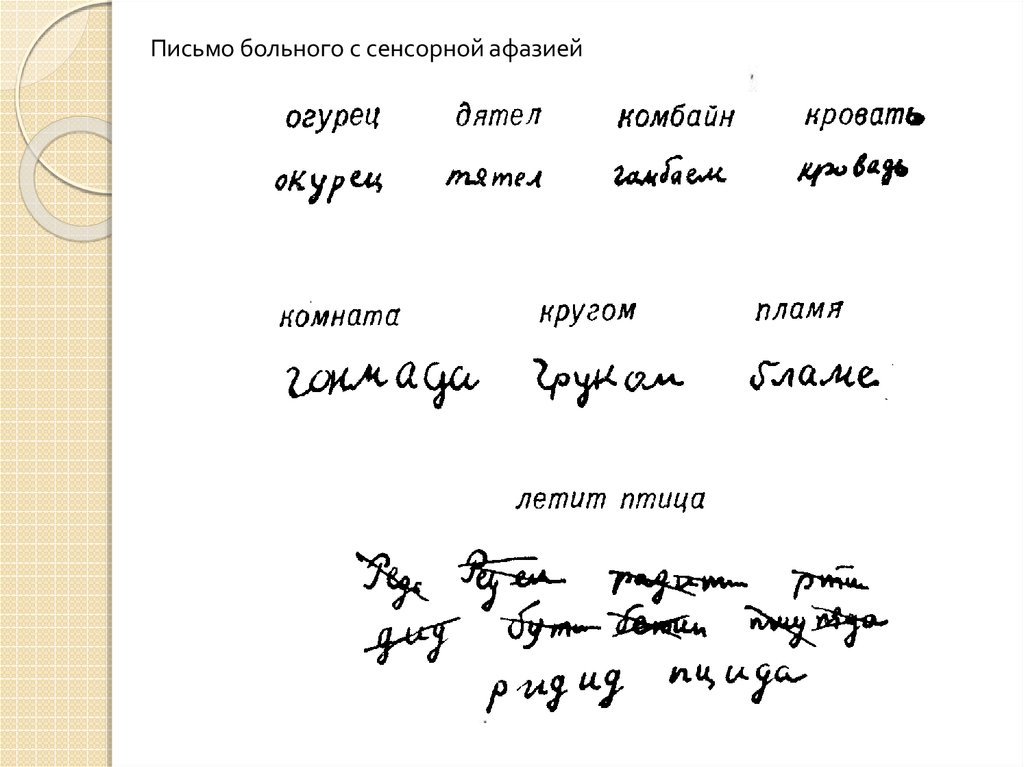 Письмо больного с сенсорной афазией
огурец дятел комбайн кровать
окурец тятел гамбаем кровадь
комната кругом пламя
гонмада груком бламе
летит птица
дид бути
ридид пцида